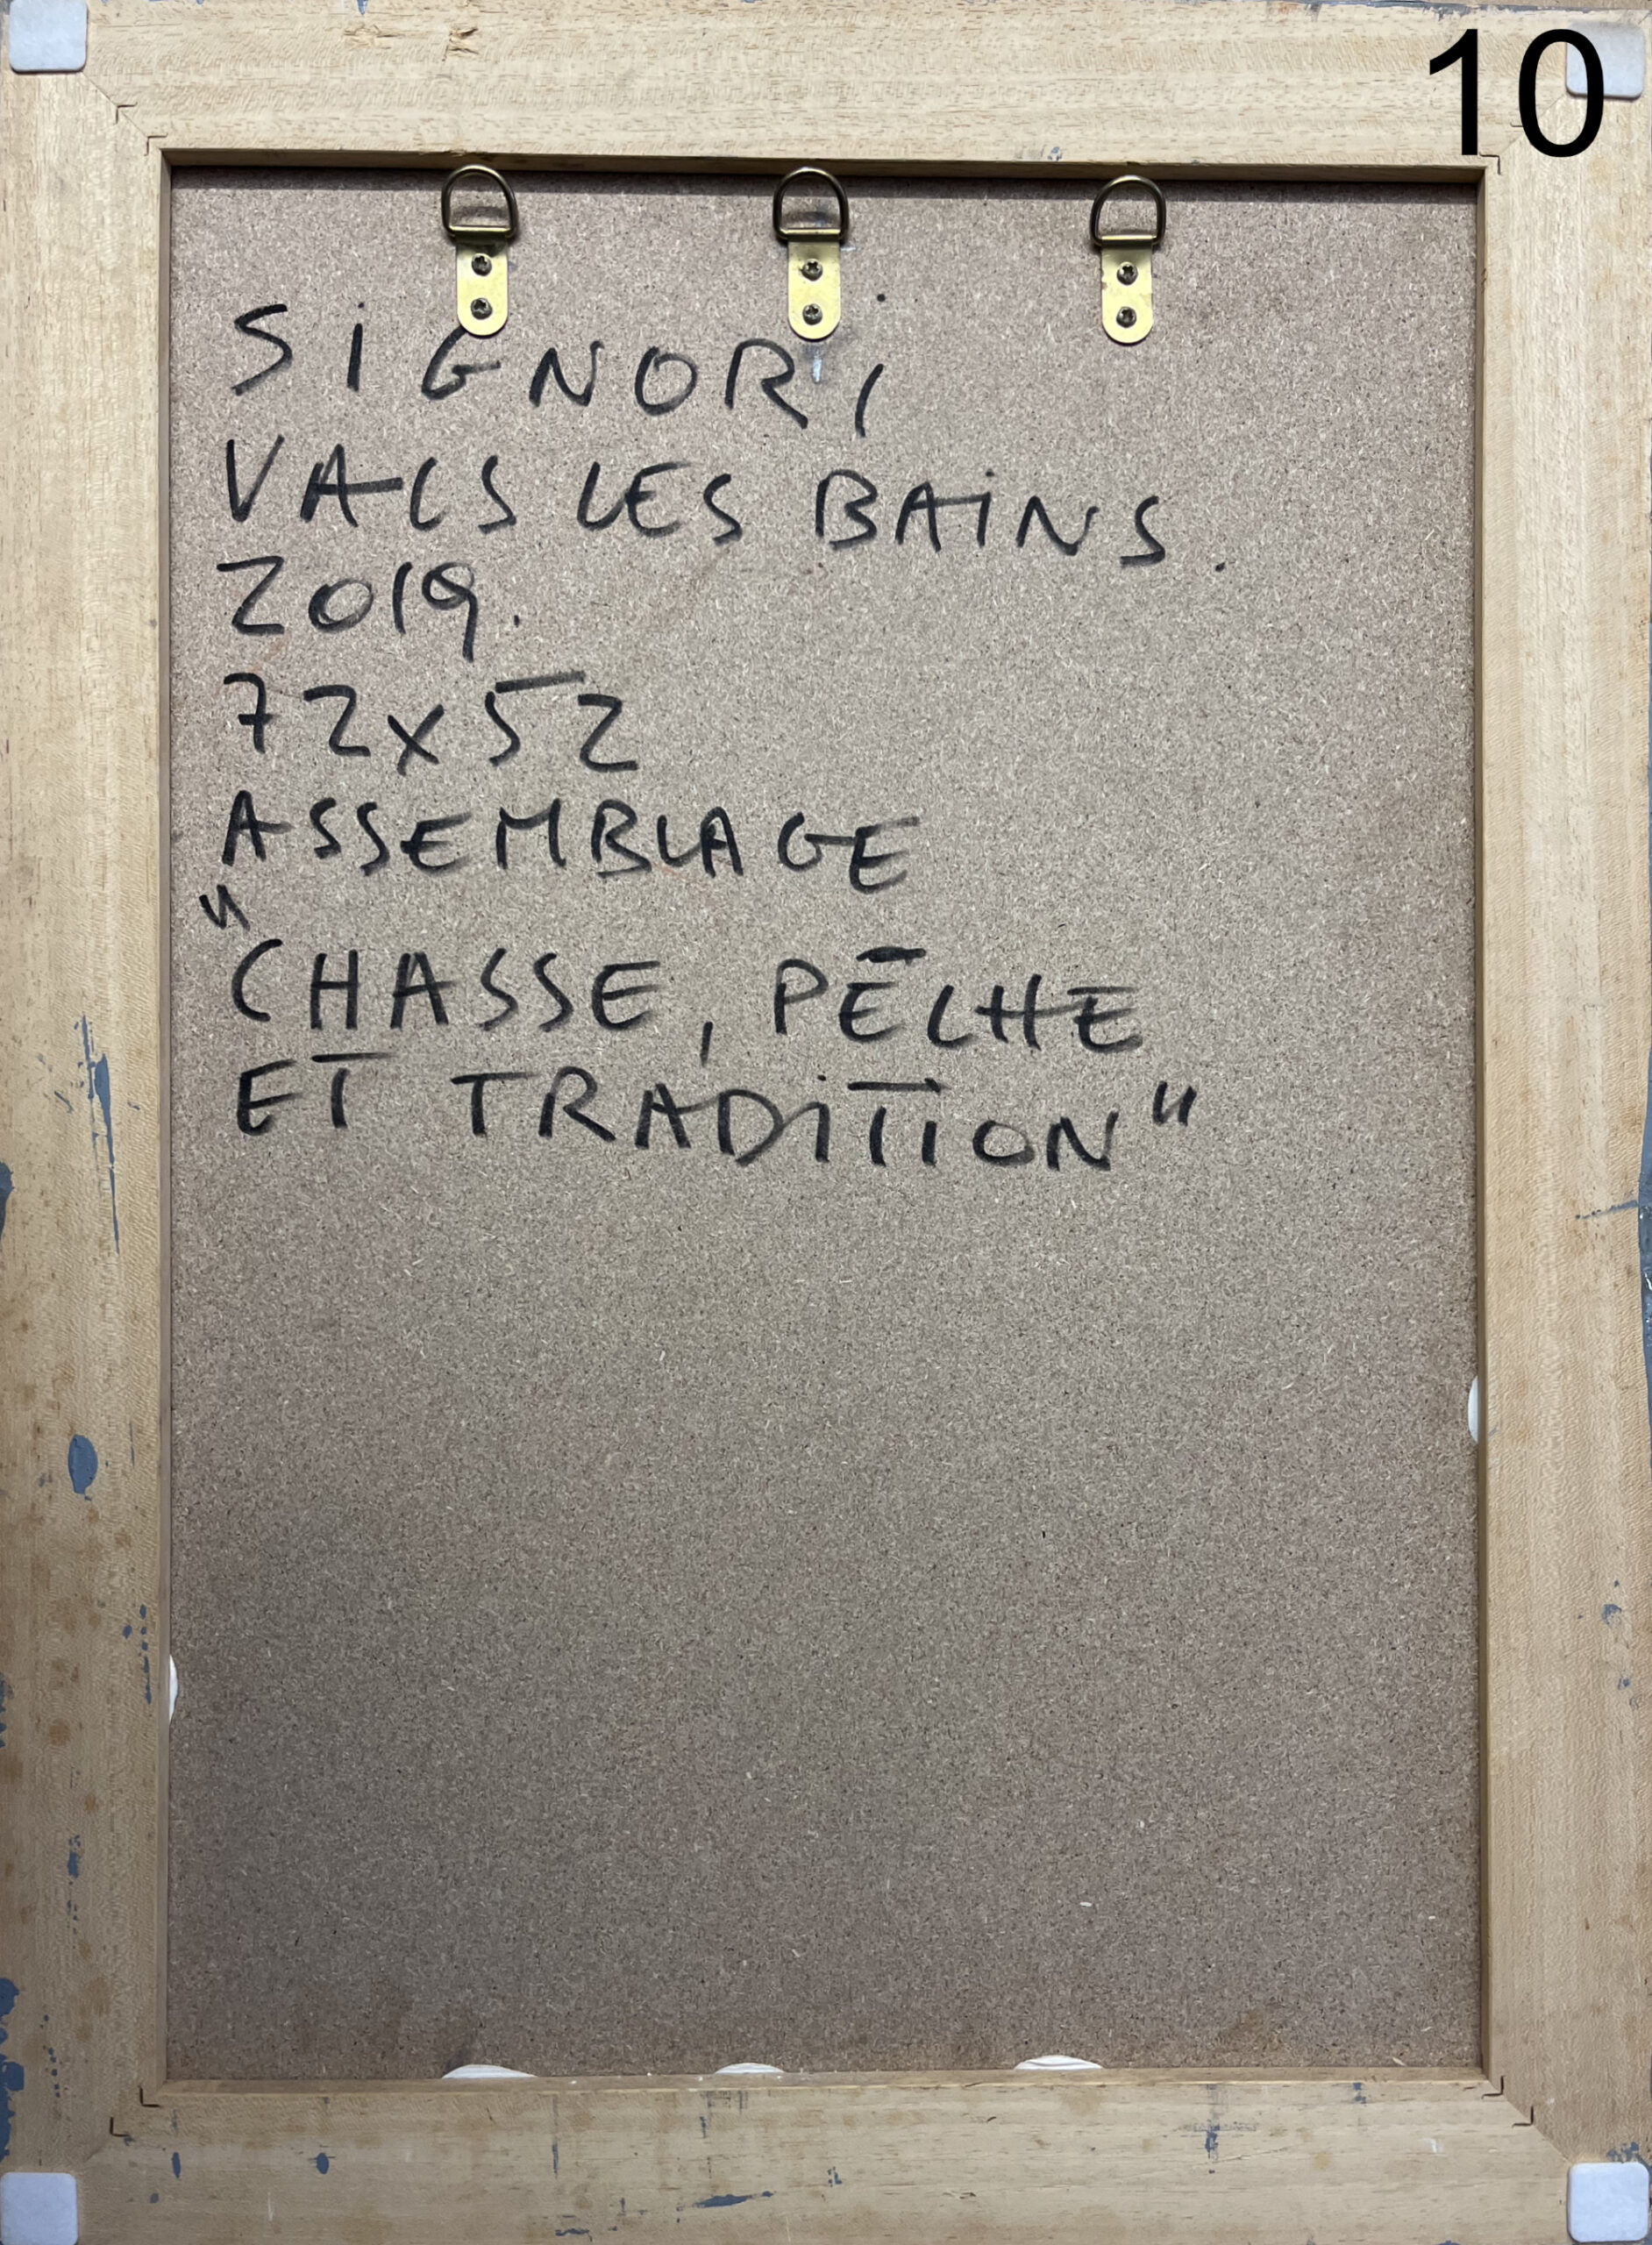 10
SiGNORi
VALS LES BAiNS.
2019.
72x52
ASSEMBLAGE
"CHASSE, PÊCHE
ET TRADiTiON"